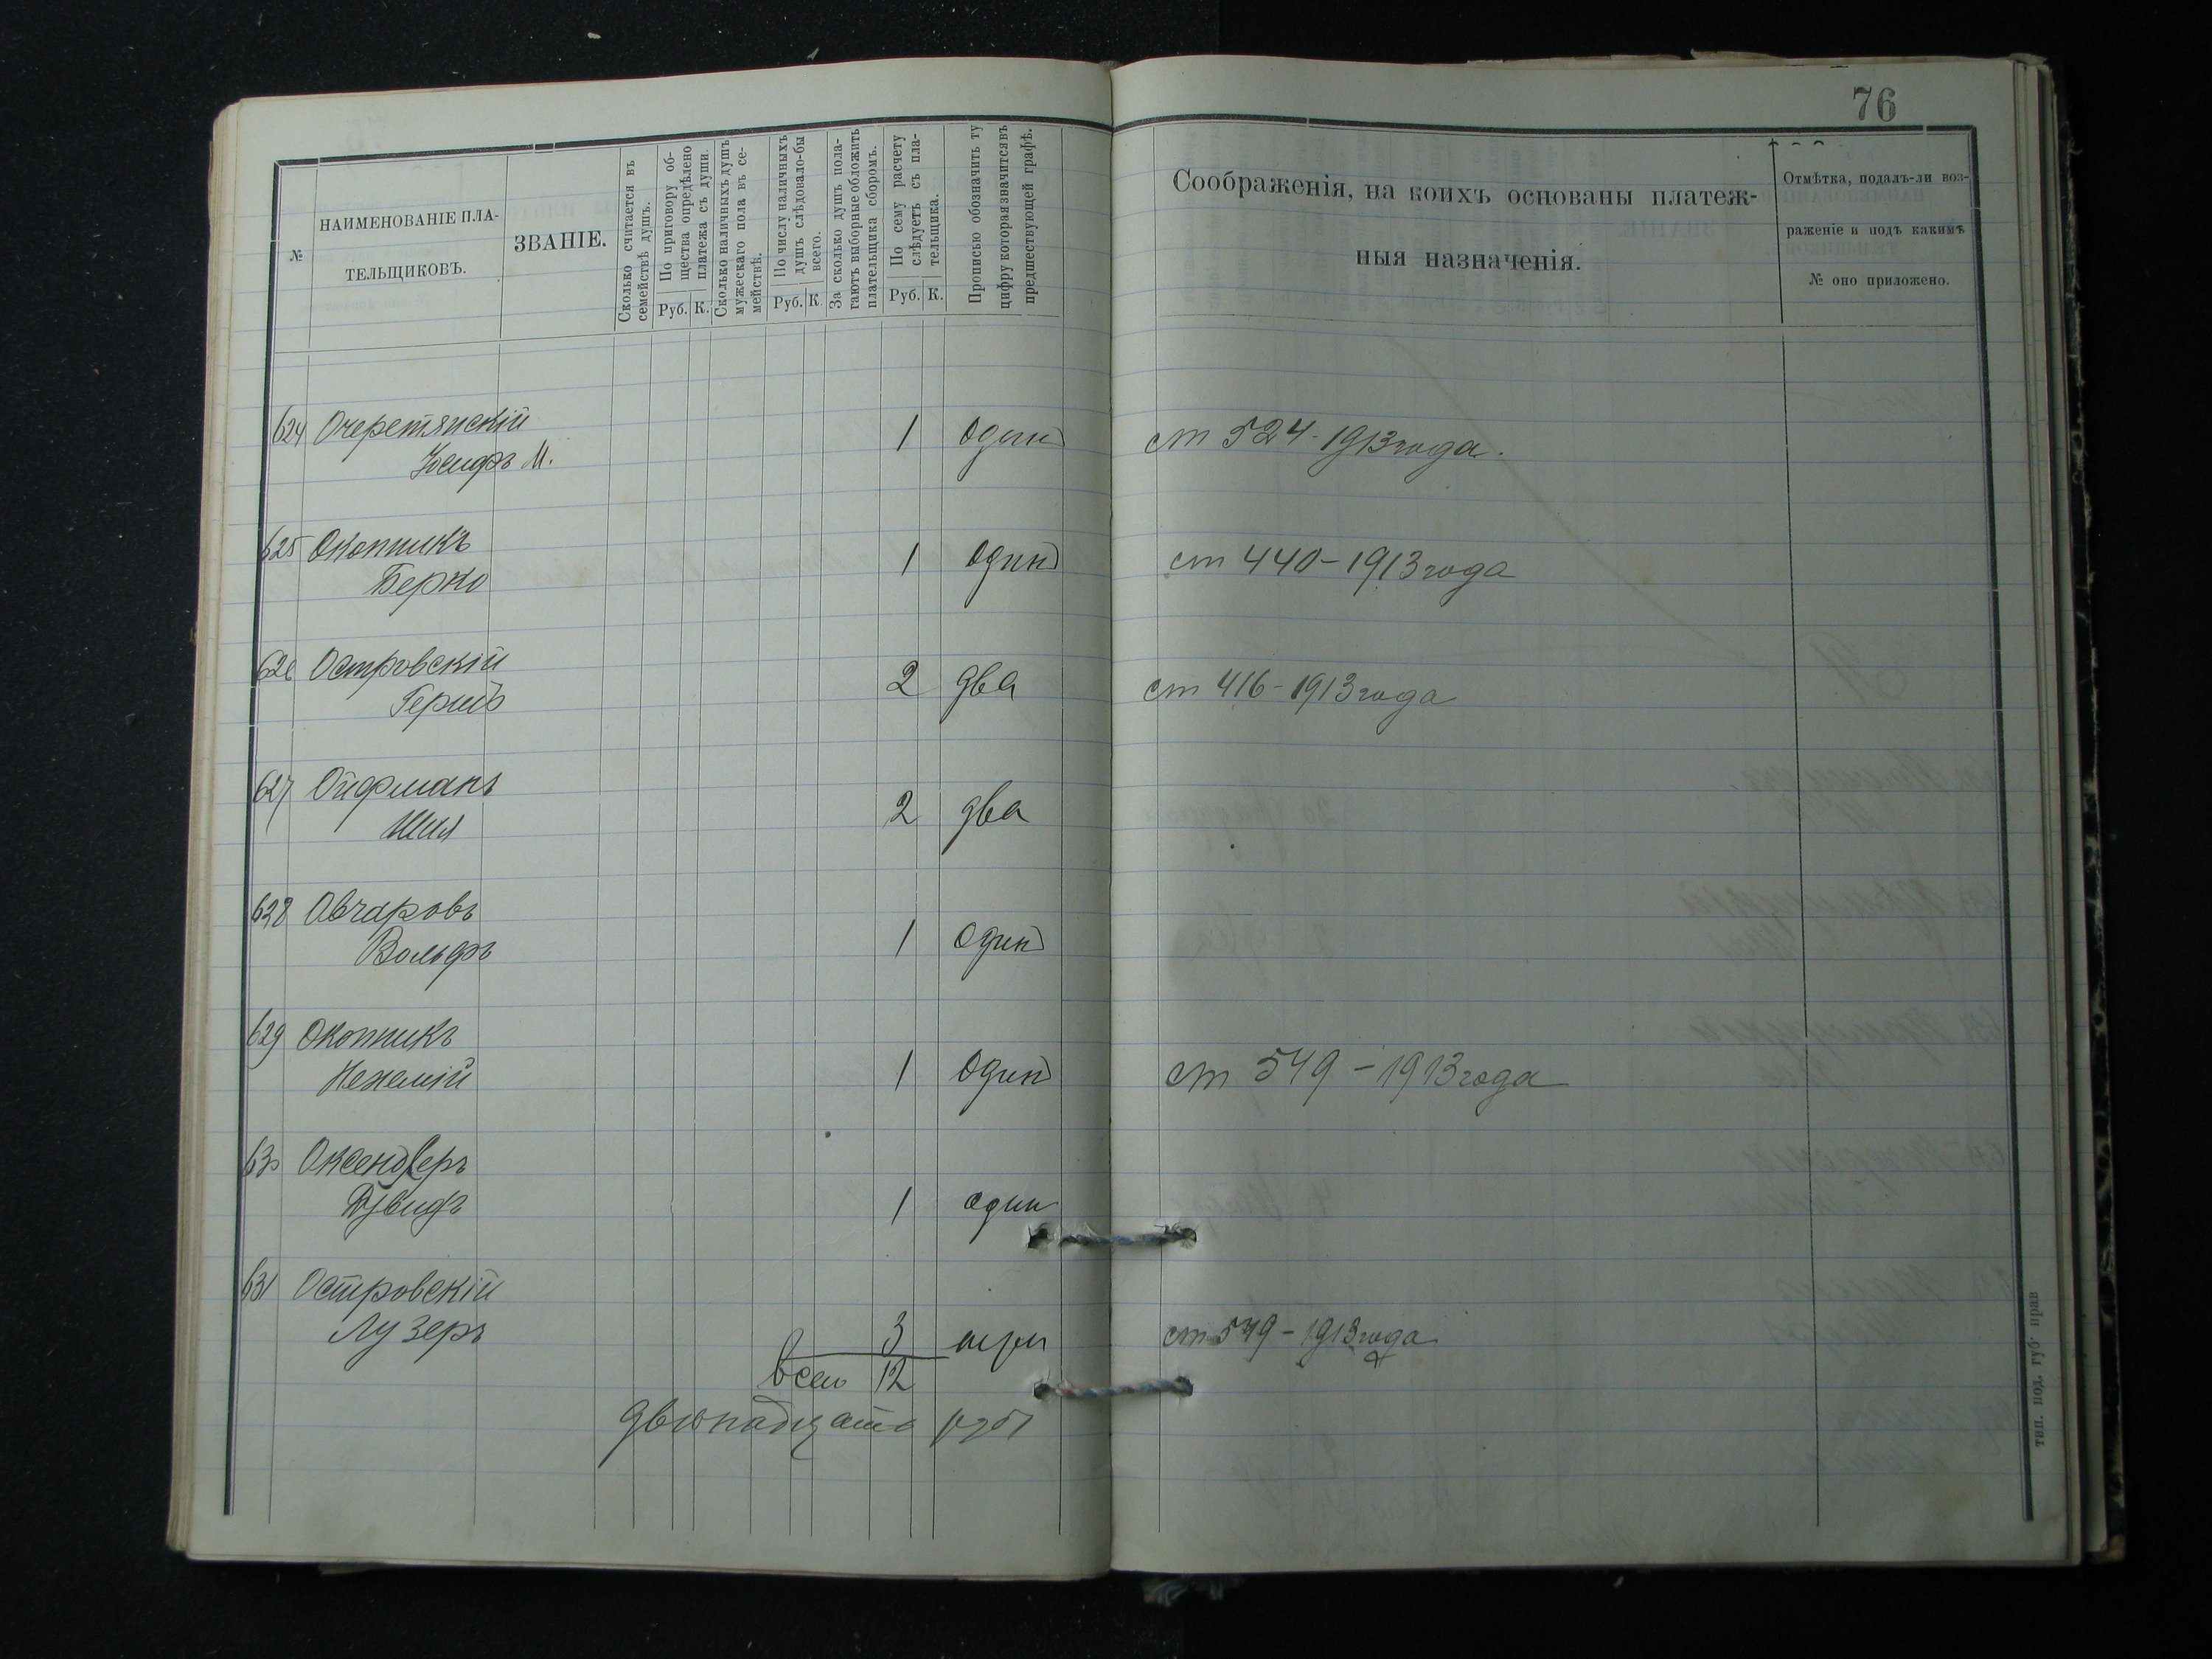 76
№
НАИМЕНОВАНІЕ ПЛА-
ТЕЛЬЩИКОВЪ.
ЗВАНІЕ.
Сколько считается въ
семействѣ душъ.
По приговору об-
щества опредѣлено
платежа съ души.
Руб. К.
Сколько наличныхъ душъ
мужескаго пола въ се-
мействѣ.
По числу наличныхъ
душъ слѣдовало-бы
всего.
Руб. К.
За сколько душъ пола-
гаютъ выборные обложить
плательщика сборомъ.
По сему расчету
слѣдуетъ съ пла-
тельщика.
Руб. К.
Прописью обозначить ту
цифру которая значится въ
предшествующей графѣ.
Соображенія, на коихъ основаны платеж-
ныя назначенія.
Отмѣтка, подалъ-ли воз-
раженіе и подъ какимъ
№ оно приложено.
624 Очеретянскій
Іосифъ М. 1 один ст 524 - 1913 года.
625 Окопникъ
Берко 1 один ст 440 - 1913 года
626 Островскій
Герш 2 два ст 416 - 1913 года
627 Ойфманъ
Шая 2 два
628 Овчаровъ
Вольфъ 1 один
629 Окопникъ
Нехемій 1 один ст 549 - 1913 года
630 Оксендлеръ
Дувидъ 1 один
631 Островскій
Лузеръ 3 три ст 549 - 1913 года
всего 12
двенадцать руб
тип. под. губ. прав